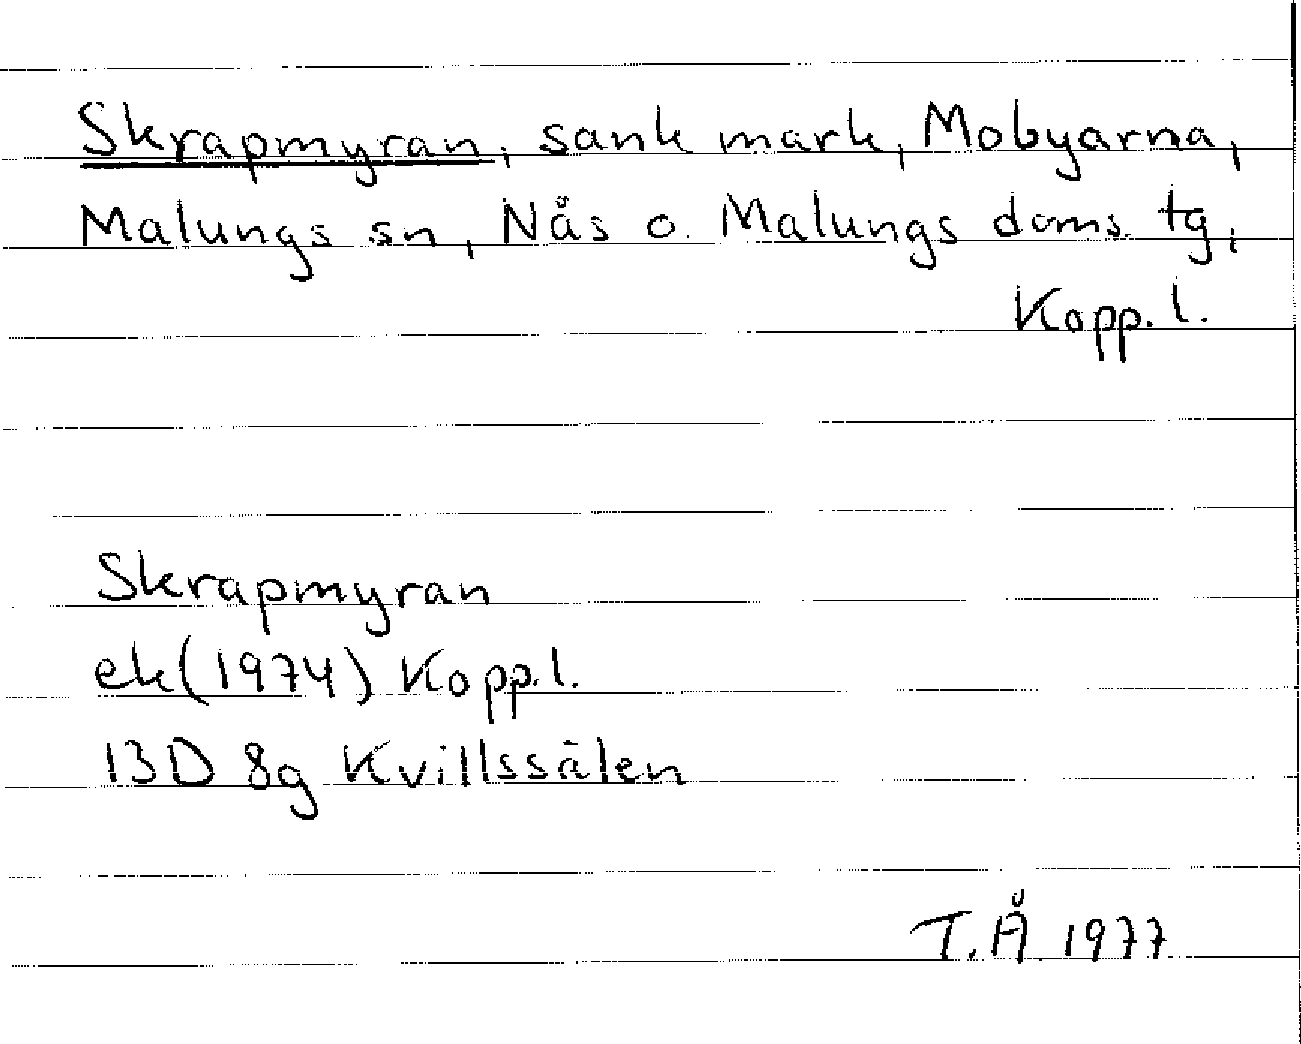 Skrapmyran, sank mark, Mobyarna,
Malungs sn, Nås o. Malungs doms. tg,
Kopp. l.
Skrapmyran
ek (1974) Kopp. l.
13D 8g Kvillssälen
T.Å. 1977